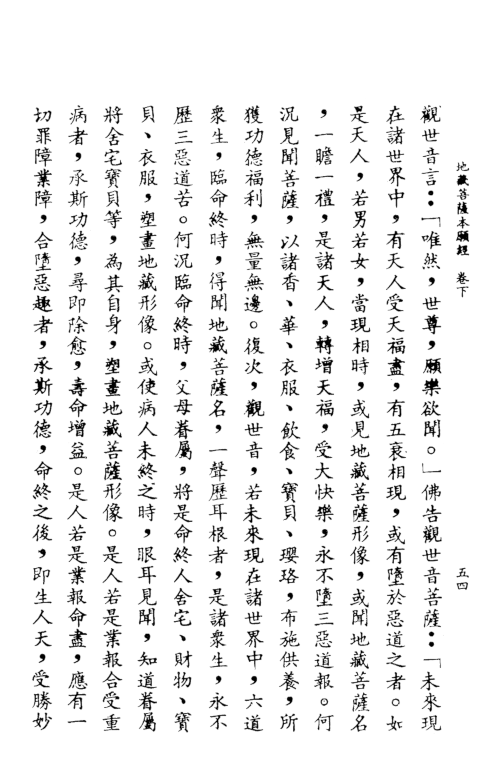 地藏菩薩本願經　卷下
五四
觀世音言：「唯然，世尊，願樂欲聞。」佛告觀世音菩薩：「未來現
在諸世界中，有天人受天福盡，有五衰相現，或有墮於惡道之者。如
是天人，若男若女，當現相時，或見地藏菩薩形像，或聞地藏菩薩名
，一瞻一禮，是諸天人，轉增天福，受大快樂，永不墮三惡道報。何
況見聞菩薩，以諸香、華、衣服、飲食、寶貝、瓔珞，布施供養，所
獲功德福利，無量無邊。復次，觀世音，若未來現在諸世界中，六道
衆生，臨命終時，得聞地藏菩薩名，一聲歷耳根者，是諸衆生，永不
歷三惡道苦。何況臨命終時，父母眷屬，將是命終人舍宅、財物、寶
貝、衣服，塑畫地藏形像。或使病人未終之時，眼耳見聞，知道眷屬
將舍宅寶貝等，為其自身，塑畫地藏菩薩形像。是人若是業報合受重
病者，承斯功德，尋即除愈，壽命增益。是人若是業報命盡，應有一
切罪障業障，合墮惡趣者，承斯功德，命終之後，即生人天，受勝妙